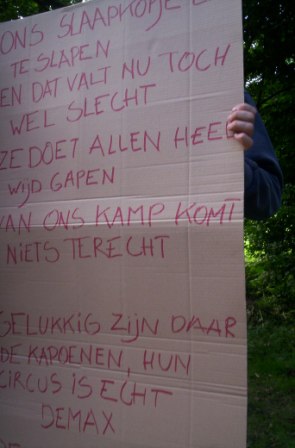 ONS SLAAPKOPJE
TE SLAPEN
EN DAT VALT NU TOCH
WEL SLECHT
ZE DOET ALLEN HEEL
WIJD GAPEN
VAN ONS KAMP KOMT
NIETS TERECHT
GELUKKIG ZIJN DAAR
DE KAPOENEN, HUN
CIRCUS IS ECHT
DEMAX